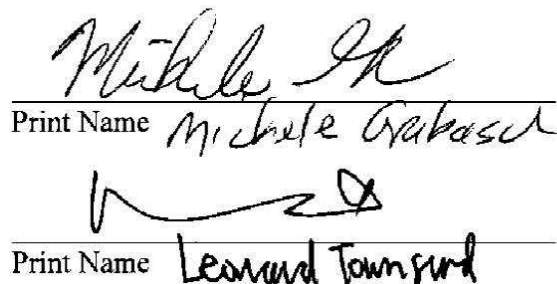 Michele
Print Name Michele Grabasch
Print Name Leonard Townsend